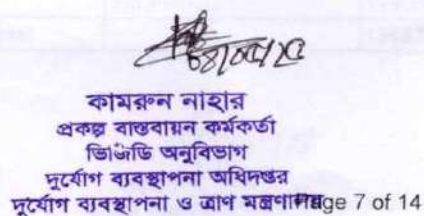 কামরুন নাহার
প্রকল্প বাস্তবায়ন কর্মকর্তা
ভিজিডি অনুবিভাগ
দুর্যোগ ব্যবস্থাপনা অধিদপ্তর
দুর্যোগ ব্যবস্থাপনা ও ত্রাণ মন্ত্রণালয় Page 7 of 14